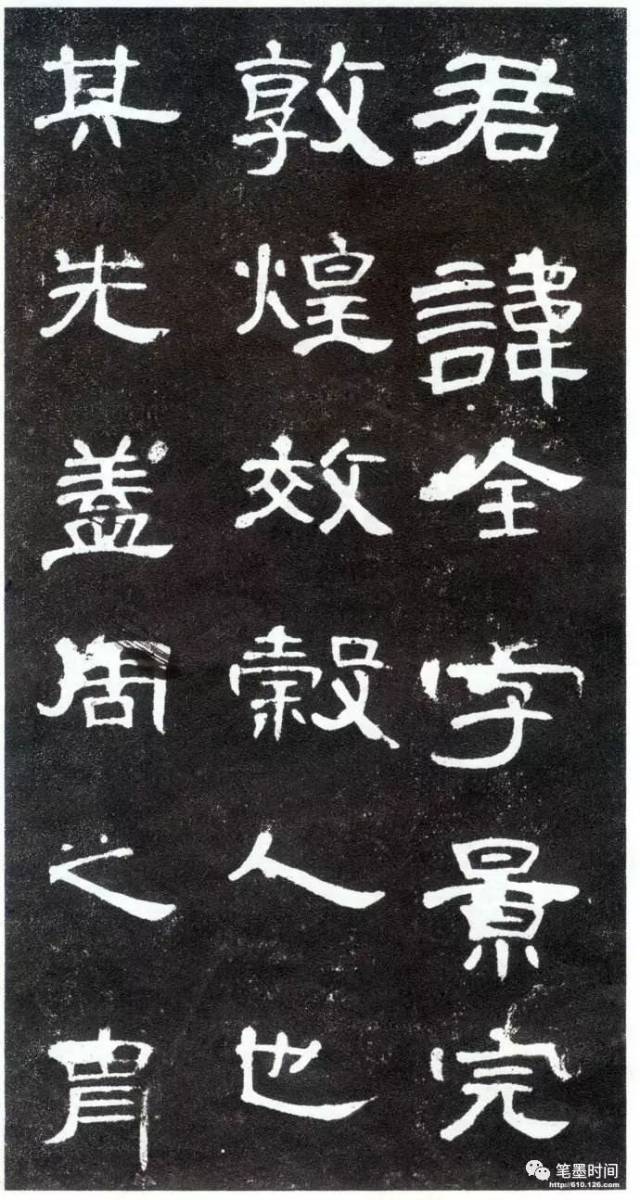 君諱全字景完
敦煌效穀人也
其先蓋周之胄
笔墨时间
http://610.126.com